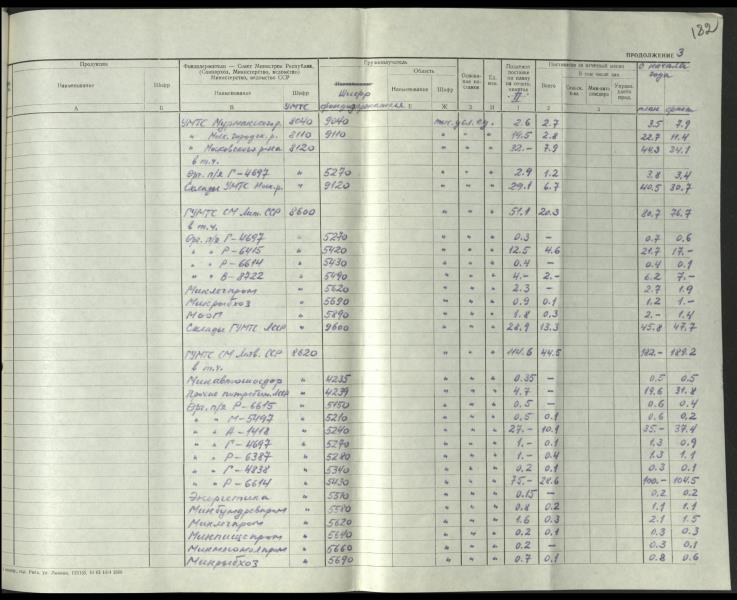 182
ПРОДОЛЖЕНИЕ 3
Продукция
Фондодержатели — Совет Министров Республики, (Совнархоз, Министерство, ведомство) Министерство, ведомство СССР
Грузополучатель
Область
Наименование Шифр Наименование Шифр Шифр Наименование Шифр Ед. изм.
Всего В том числе
с начала года
А Б В Г Е Ж З И 1 2 3
УМТС фондодержателя II план факт
УМТС 8040 9040 тыс.усл.ед. 2.6 2.7 3.5 7.9
8110 9110 " " " 19.5 2.8 22.7 11.4
" Московского р-на 8120 " " " 32.- 7.9 44.3 34.1
в т.ч.
Орг. п/я Г-4697 " 5270 " " " 2.9 1.2 3.8 3.4
Склады УМТС " 9120 " " " 29.1 6.7 40.5 30.7
ГУМТС СМ Лит. ССР 8600 " " " 51.1 20.3 80.7 76.7
в т.ч.
Орг. п/я Г-4697 " 5270 " " " 0.3 — 0.7 0.6
" " Р-6415 " 5420 " " " 12.5 4.6 21.7 17.-
" " Р-6614 " 5430 " " " 0.4 — 0.4 0.1
" " В-8722 " 5490 " " " 4.- 2.- 6.2 7.-
Минлегпром " 5620 " " " 2.3 — 2.7 1.9
Минрыбхоз " 5690 " " " 0.9 0.1 1.2 1.-
МООП " 5890 " " " 1.8 0.3 2.- 1.4
Склады ГУМТС ЛССР " 9600 " " " 28.9 13.3 45.8 47.7
ГУМТС СМ Латв. ССР 8620 " " " 114.6 44.5 182.- 189.2
в т.ч.
Минавтошосдор " 4235 " " " 0.35 — 0.5 0.5
Прочие потребит. ЛССР " 4239 " " " 4.7 — 19.6 31.8
Орг. п/я Р-6615 " 5150 " " " 0.5 — 0.6 0.4
" " М-5497 " 5210 " " " 0.5 0.1 0.6 0.2
" " А-1418 " 5240 " " " 27.- 10.1 35.- 37.4
" " Г-4697 " 5270 " " " 1.- 0.1 1.3 0.9
" " Р-6387 " 5280 " " " 1.- 0.4 1.3 1.1
" " Г-4838 " 5340 " " " 0.2 0.1 0.3 0.1
" " Р-6614 " 5430 " " " 75.- 28.6 100.- 104.5
Энергетика " 5510 " " " 0.15 — 0.2 0.2
Минбумдревпром " 5580 " " " 0.8 0.2 1.1 1.1
Минлегпром " 5620 " " " 1.6 0.3 2.1 1.5
Минпищепром " 5640 " " " 0.2 0.1 0.3 0.3
Минмясомолпром " 5660 " " " 0.2 — 0.3 0.1
Минрыбхоз " 5690 " " " 0.7 0.1 0.8 0.6